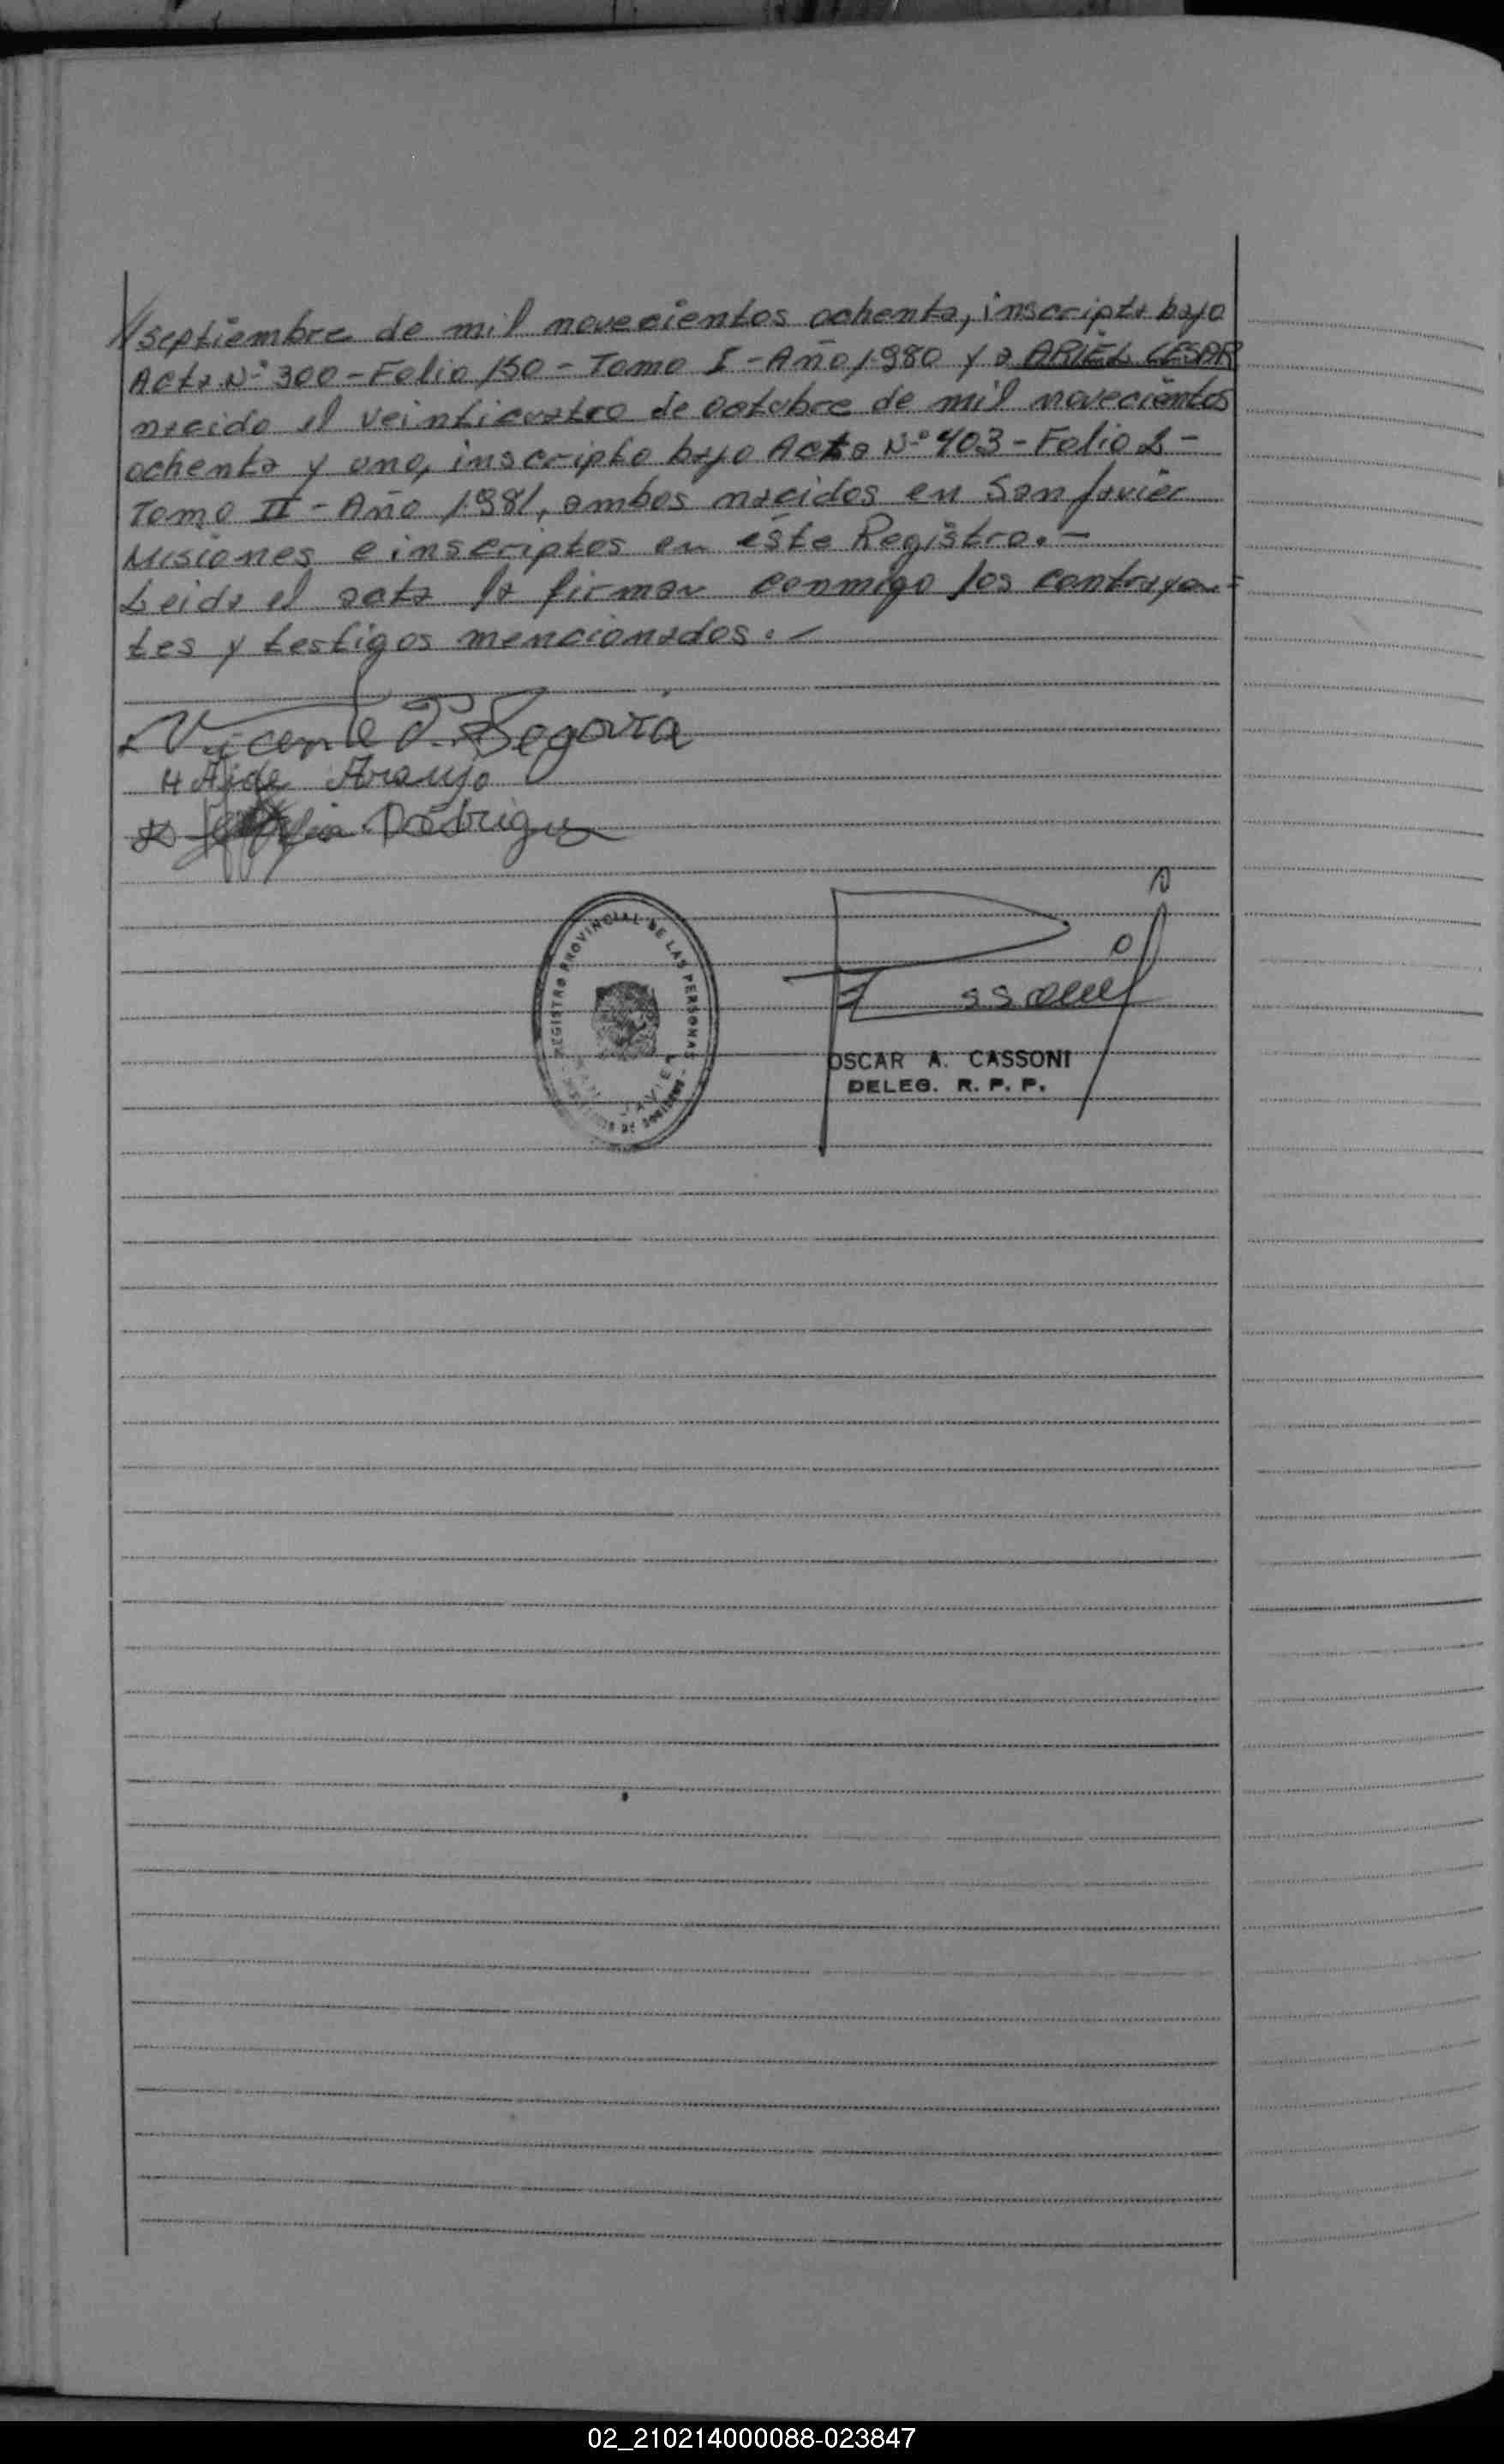 //septiembre de mil novecientos ochenta, inscripta bajo
Acta Nº 300 - Folio 150 - Tomo I - Año 1.980 y a ARIEL CESAR
nacido el veinticuatro de octubre de mil novecientos
ochenta y uno, inscripto bajo Acta Nº 403 - Folio 2 -
Tomo II - Año 1.981, ambos nacidos en San Javier
Misiones e inscriptos en éste Registro. -
Leida el acta la firman conmigo los contrayen=
tes y testigos mencionados. -
Vicente P. Segovia
Araujo
Rodriguez
REGISTRO PROVINCIAL DE LAS PERSONAS
OSCAR A. CASSONI
DELEG. R. P. P.
02_210214000088-023847